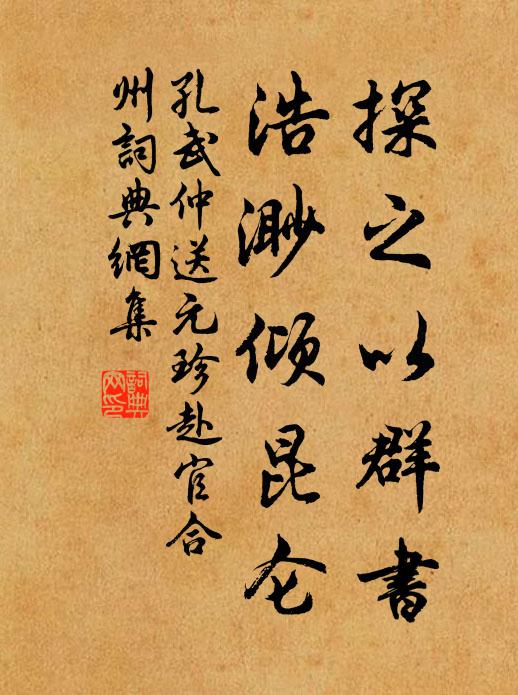 探之以群書
浩渺倾昆仑
孔武仲送元珍赴官合
州詞典網集
詞典
网印